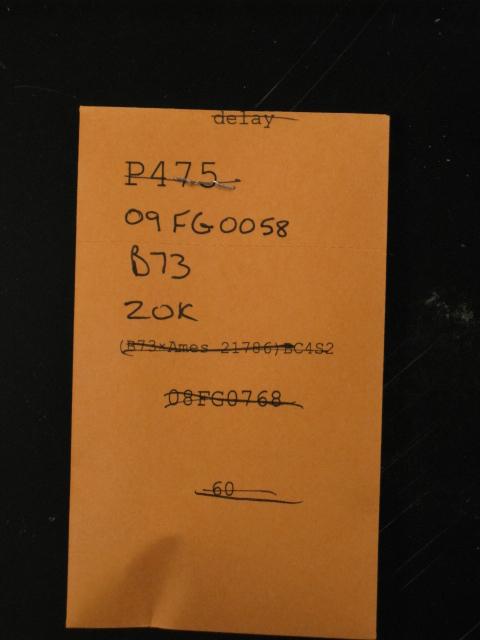 delay
P475
09FG0058
B73
20K
(B73×Ames 21786)BC4S2
08FG0768
60